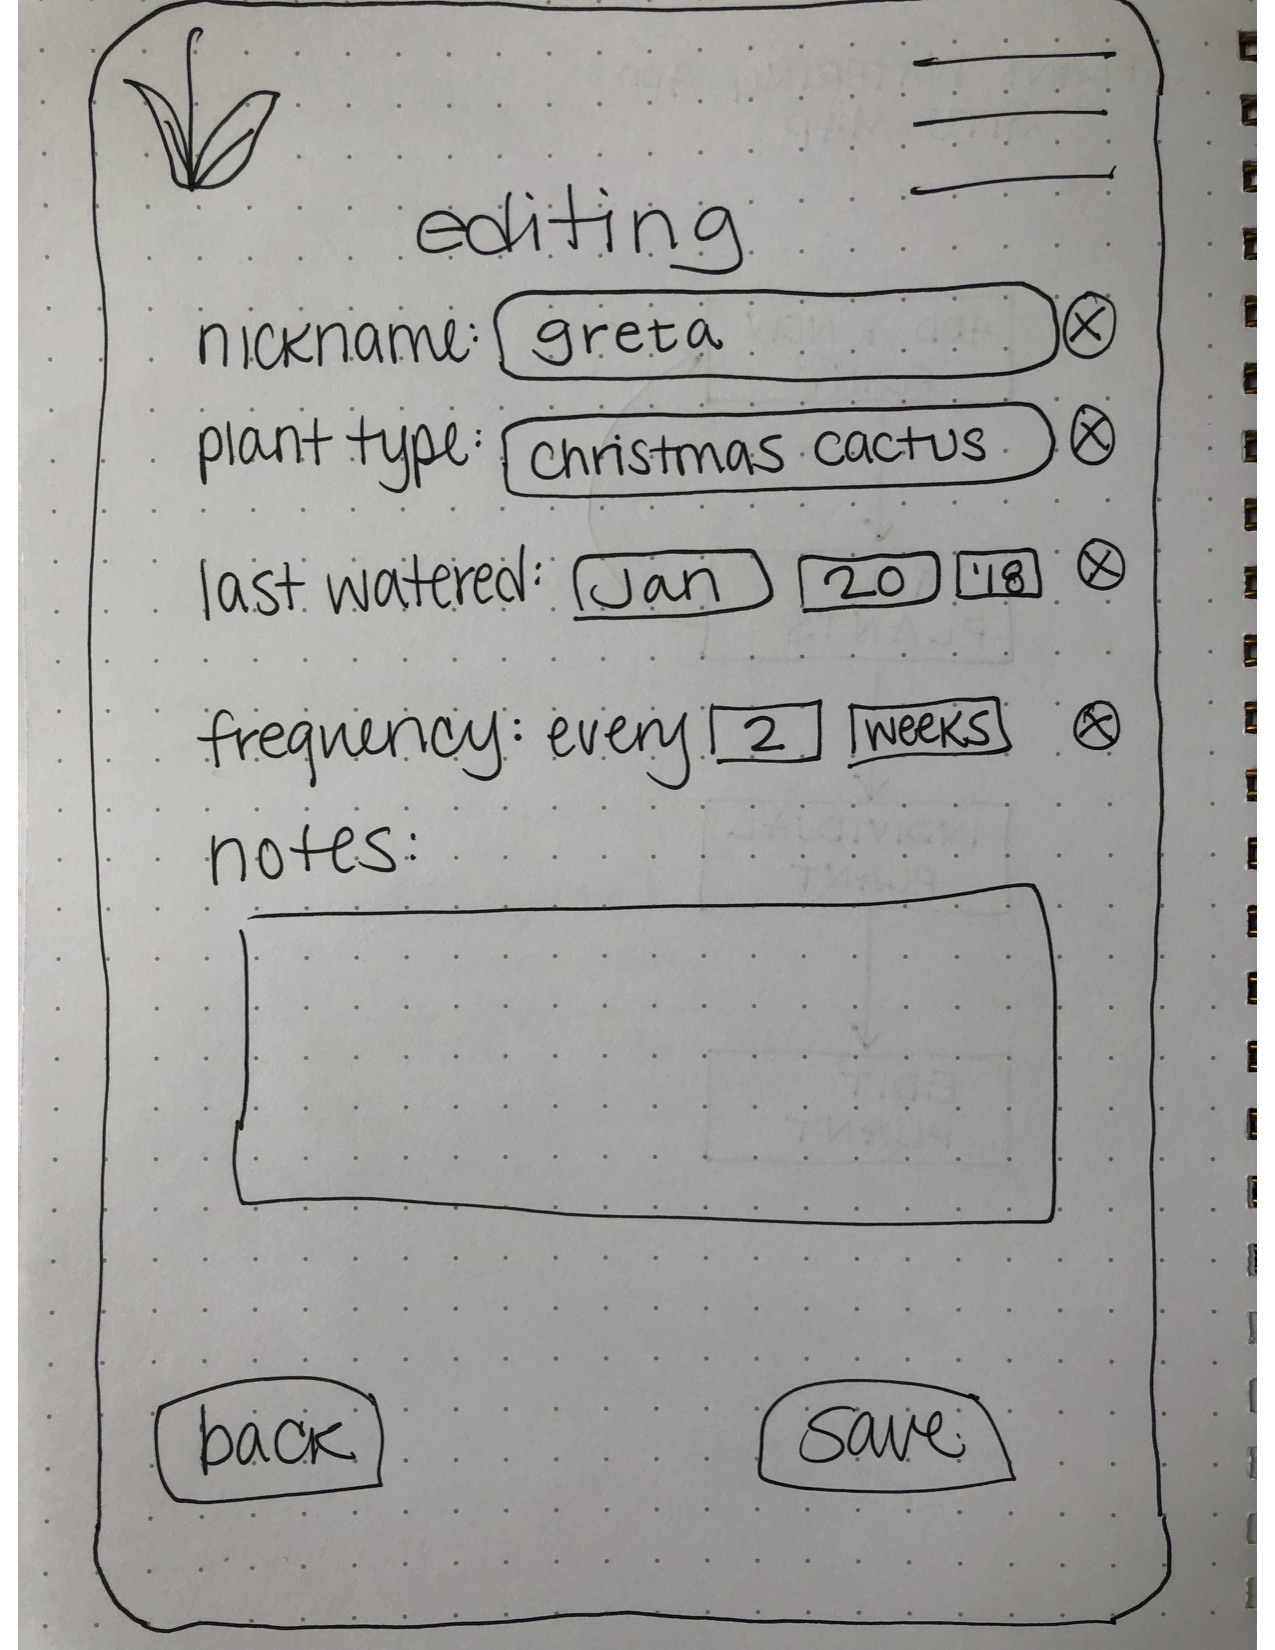 editing
nickname: greta
plant type: christmas cactus
last watered: Jan 20 '18
frequency: every 2 weeks
notes:
back save